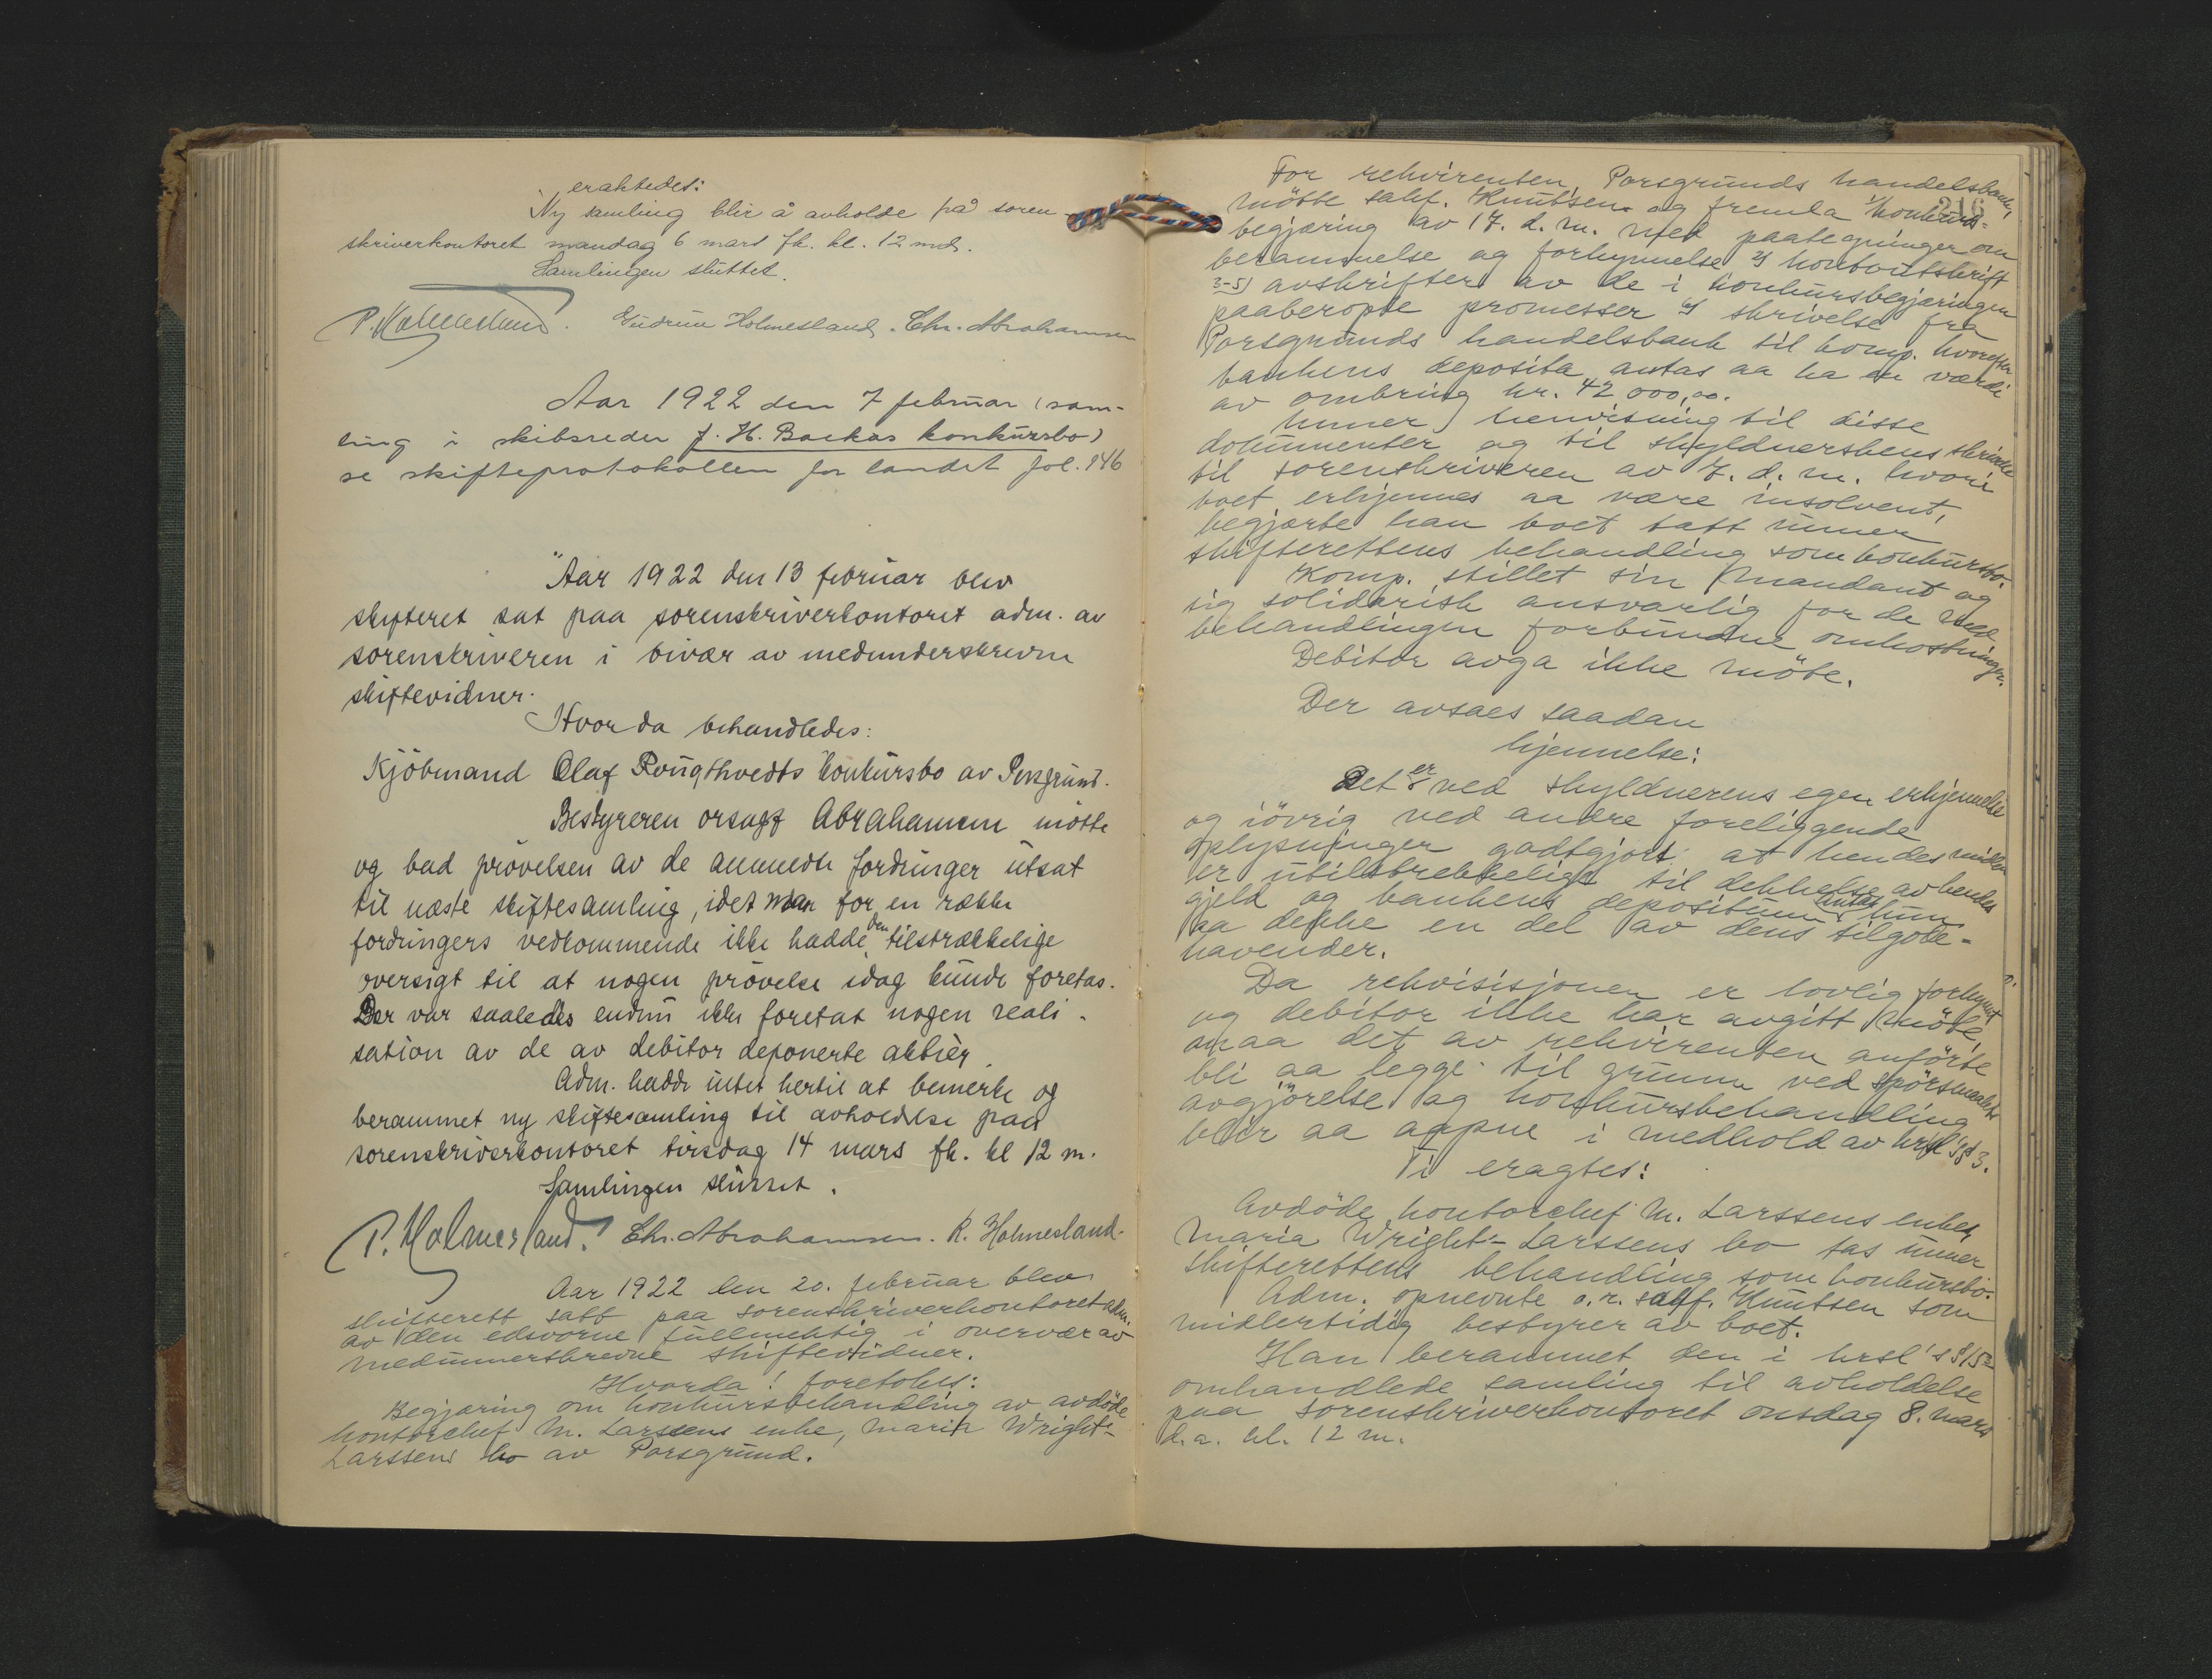 eraktedes:
Ny samling blir å avholde på soren-
skriverkontoret mandag 6 mars fk. kl. 12 md.
Samlingen sluttet.
P. Holmesland. Gudrun Holmesland. Chr. Abrahamsen
Aar 1922 den 7 februar (sam-
ling i skibsreder J. H. Backas konkursbo)
se skifteprotokollen for landet fol. 146
Aar 1922 den 13 februar blev
skifteret sat paa sorenskriverkontoret adm. av
sorenskriveren i bivær av medunderskrevne
skiftevidner.
Hvorda behandledes:
Kjöbmand Olaf Rougthvedts konkursbo av Porsgrund.
Bestyreren orsagf Abrahamsen mötte
og bad prövelsen av de anmeldte fordringer utsat
til næste skiftesamling, idet man for en række
fordringers vedkommende ikke hadde den tilstrækkelige
oversigt til at nogen prövelse idag kunde foretas.
Der var saaledes endnu ikke foretat nogen reali-
sation av de av debitor deponerte aktier.
Adm. hadde intet hertil at bemerke og
berammet ny skiftesamling til avholdelse paa
sorenskriverkontoret tirsdag 14 mars fk. kl 12 m.
Samlingen sluttet.
P. Holmesland. Chr. Abrahamsen. R. Holmesland.
Aar 1922 den 20. februar blev
skifterett satt paa sorenskriverkontoret adm.
av den edsvorne fullmektig i overvær av
medunnerskrevne skiftevidner.
Hvorda! foretokes:
Begjæring om konkursbehandling av avdöde
kontorchef M. Larssens enke, Maria Wright-
Larssens bo av Porsgrund.
216
For rekvirenten, Porsgrunds handelsbank,
mötte sakf. Knutsen og fremla 1) konkurs-
begjæring av 17. d. m. med paategninger om
berammelse og forkynnelse 2) kontoutskrift
3-5) avskrifter av de i konkursbegjæringen
paaberopte promesser 6) skrivelse fra
Porsgrunds handelsbank til komp. hvorefter
bankens deposita antas aa ha en værdi
av omkring kr. 42 000,00.
Unner henvisning til disse
dokumenter og til skyldnerskens skrivelse
til sorenskriveren av 7. d. m. hvori
boet erkjennes aa være insolvent,
begjærte han boet tatt unner
skifterettens behandling som konkursbo.
Komp. stillet sin mandant og
sig solidarisk ansvarlig for de med
behandlingen forbundne omkostninger.
Debitor avga ikke möte.
Der avsaes saadan
kjennelse:
Det er ved skyldnerens egen erkjennelse
og iövrig ved andre foreliggende
oplysninger godtgjort at hendes midler
er utilstrekkelige til dekkelse av hendes
gjeld og bankens depositum antas kun
aa dekke en del av dens tilgode-
havender.
Da rekvisisjonen er lovlig forkynt
og debitor ikke har avgitt möte,
maa det av rekvirenten anförte
bli aa legge til grunn ved spörsmaalets
avgjörelse og konkursbehandling
blir aa aapne i medhold av krsl's § 3.
Ti eragtes:
Avdöde kontorchef M. Larssens enke,
Maria Wright-Larssens bo tas unner
skifterettens behandling som konkursbo.
Adm. opnevnte o.r. sakf. Knutsen som
midlertidig bestyrer av boet.
Han berammet den i krsl's § 15
omhandlede samling til avholdelse
paa sorenskriverkontoret onsdag 8. mars
d.a. kl. 12 m.